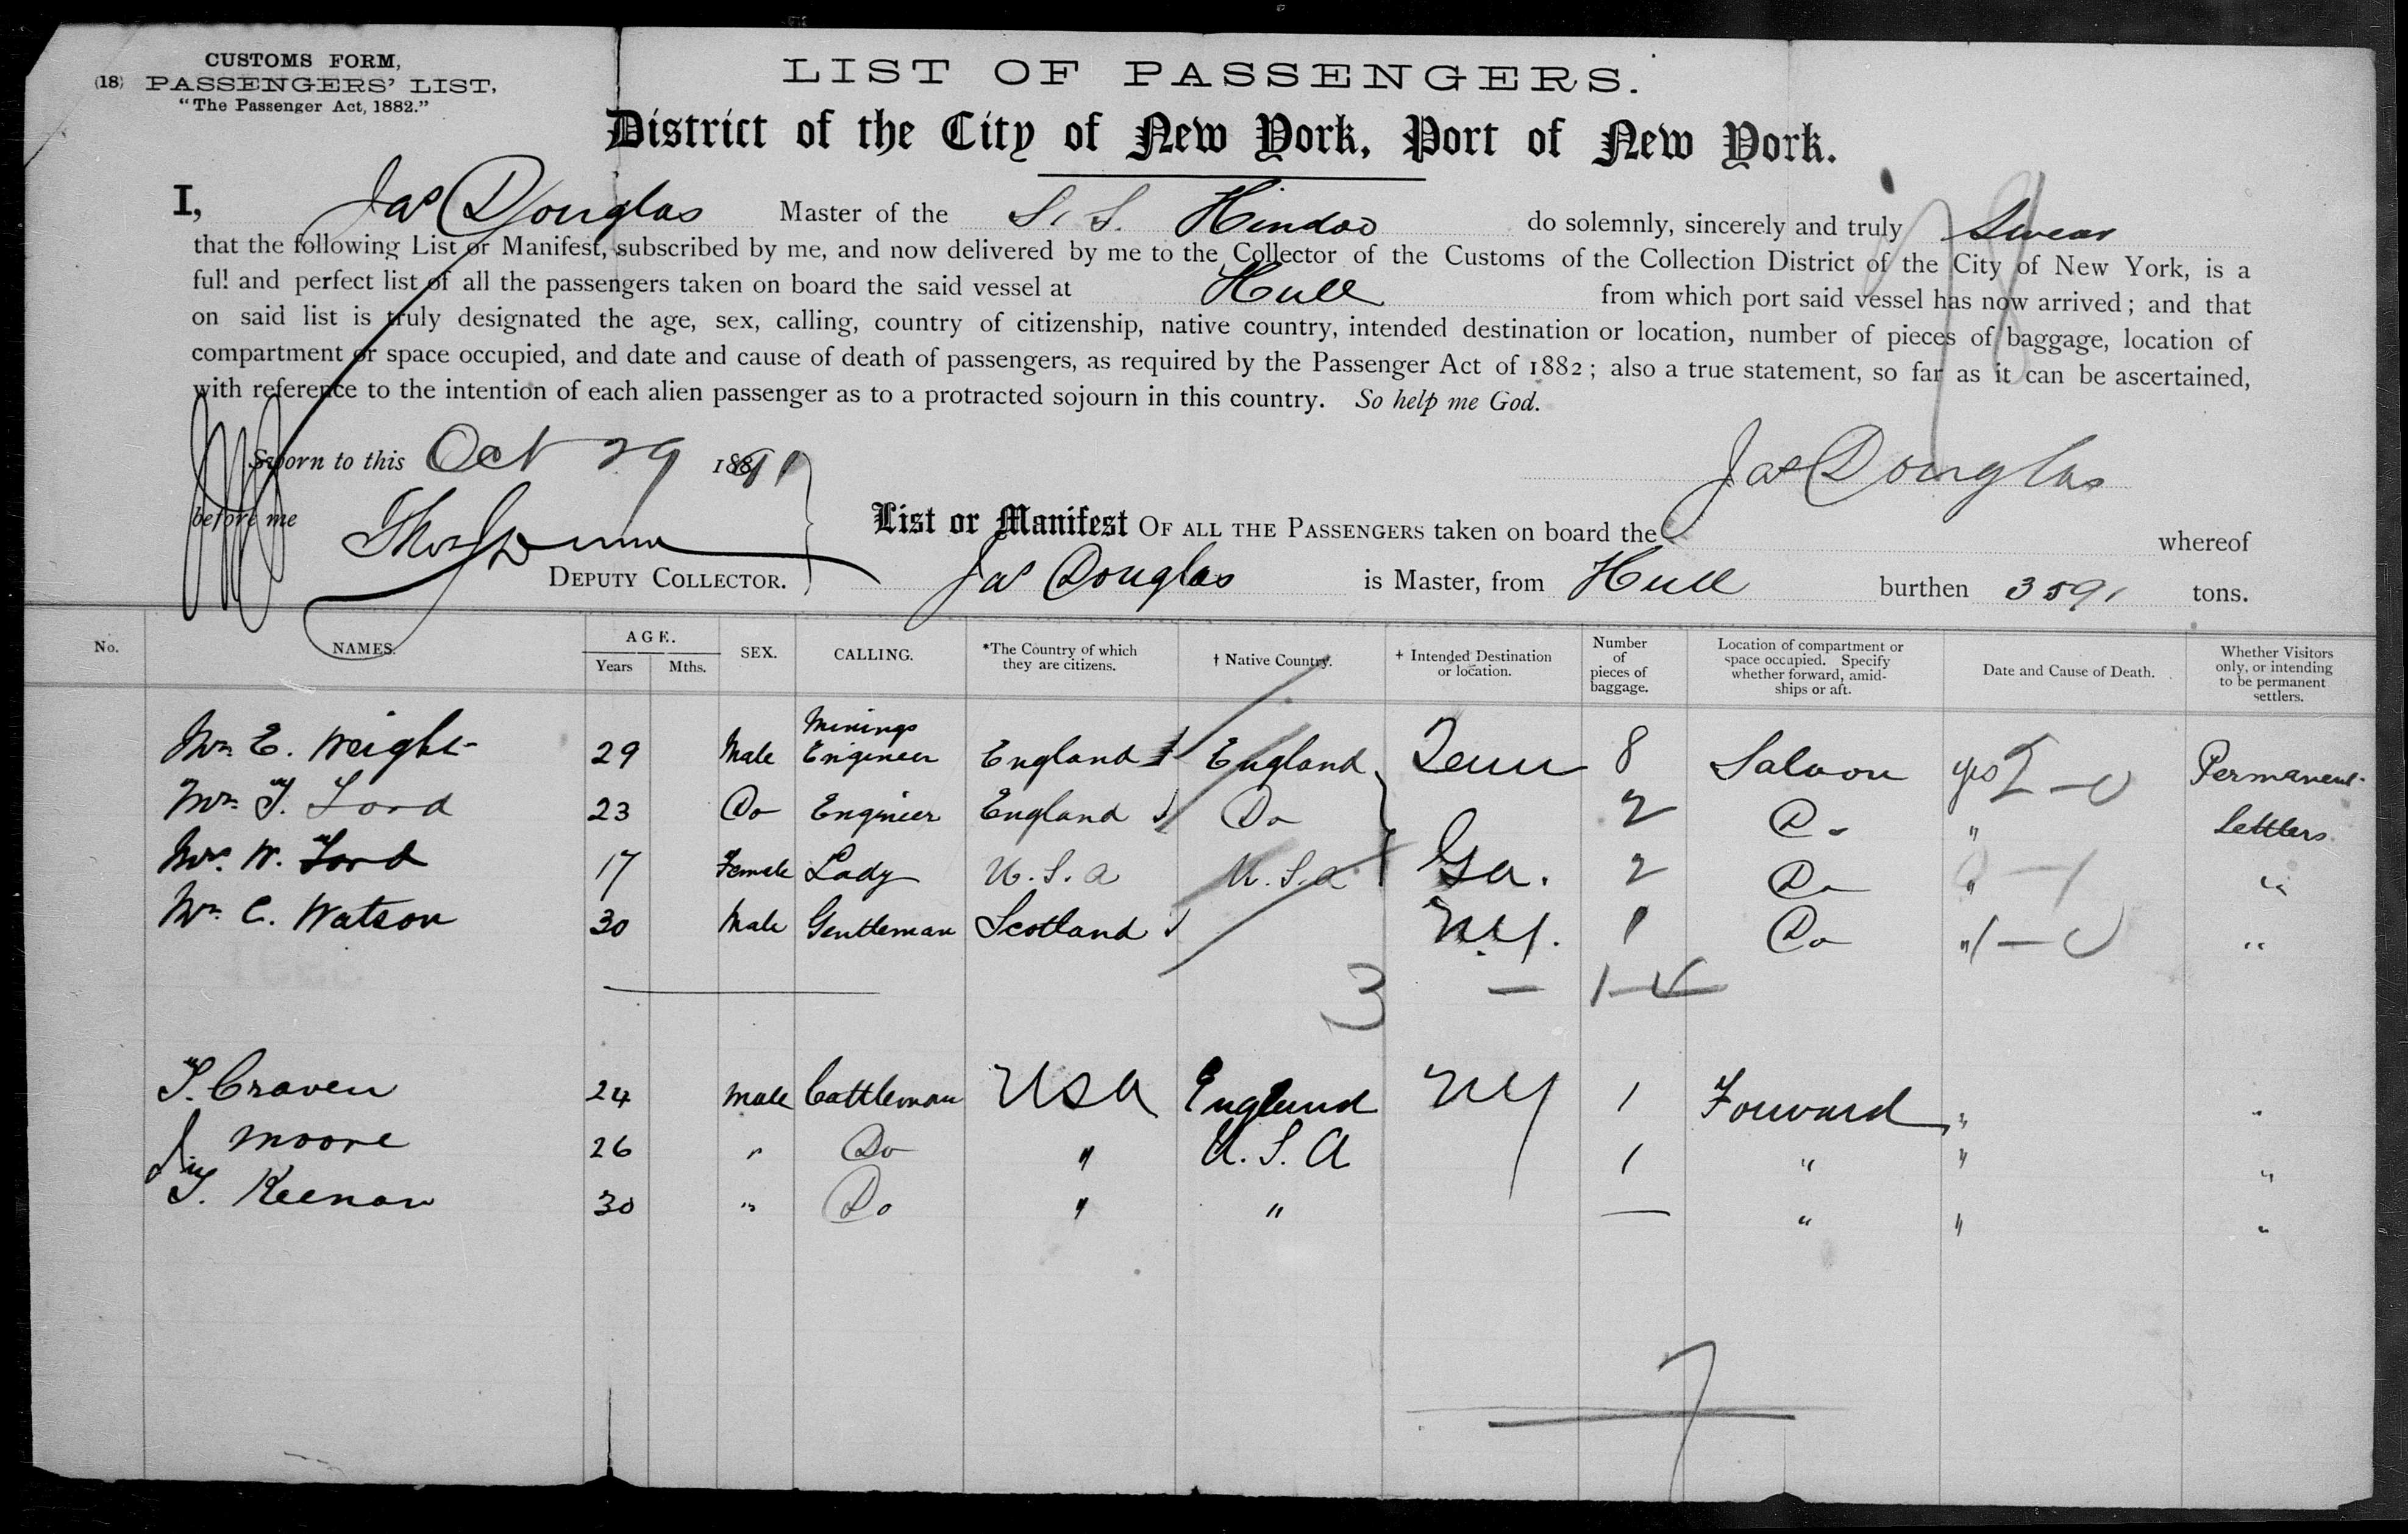 CUSTOMS FORM,
(18) PASSENGERS' LIST,
"The Passenger Act, 1882."
LIST OF PASSENGERS.
District of the City of New York, Port of New York.
I, Jas Douglas Master of the S. S. Hindoo do solemnly, sincerely and truly Swear
that the following List or Manifest, subscribed by me, and now delivered by me to the Collector of the Customs of the Collection District of the City of New York, is a
full and perfect list of all the passengers taken on board the said vessel at Hull from which port said vessel has now arrived; and that
on said list is truly designated the age, sex, calling, country of citizenship, native country, intended destination or location, number of pieces of baggage, location of
compartment or space occupied, and date and cause of death of passengers, as required by the Passenger Act of 1882; also a true statement, so far as it can be ascertained,
with reference to the intention of each alien passenger as to a protracted sojourn in this country. So help me God.
Sworn to this Oct 29 1891
Jas Douglas
before me
List or Manifest OF ALL THE PASSENGERS taken on board the whereof
DEPUTY COLLECTOR. Jas Douglas is Master, from Hull burthen 3591 tons.
No. NAMES. AGE. Years Mths. SEX. CALLING. *The Country of which they are citizens. † Native Country. + Intended Destination or location. Number of pieces of baggage. Location of compartment or space occupied. Specify whether forward, amidships or aft. Date and Cause of Death. Whether Visitors only, or intending to be permanent settlers.
Mr. E. Weight 29 Male Minings Engineer England England Tenn 8 Saloon yes 2 - 0 Permanent
Mr. T. Lord 23 Do Engineer England Do 2 Do " Settlers
Mrs. W. Lord 17 Female Lady U.S.A U.S.A Ga. 2 Do " "
Mr. C. Watson 30 Male Gentleman Scotland N.Y. 1 Do " 1 - 0 "
3 -
T. Craven 24 Male Cattleman USA England NY 1 Forward " "
J Moore 26 " Do " U.S.A 1 " " "
T. Keenan 30 " Do " " — " " "
7